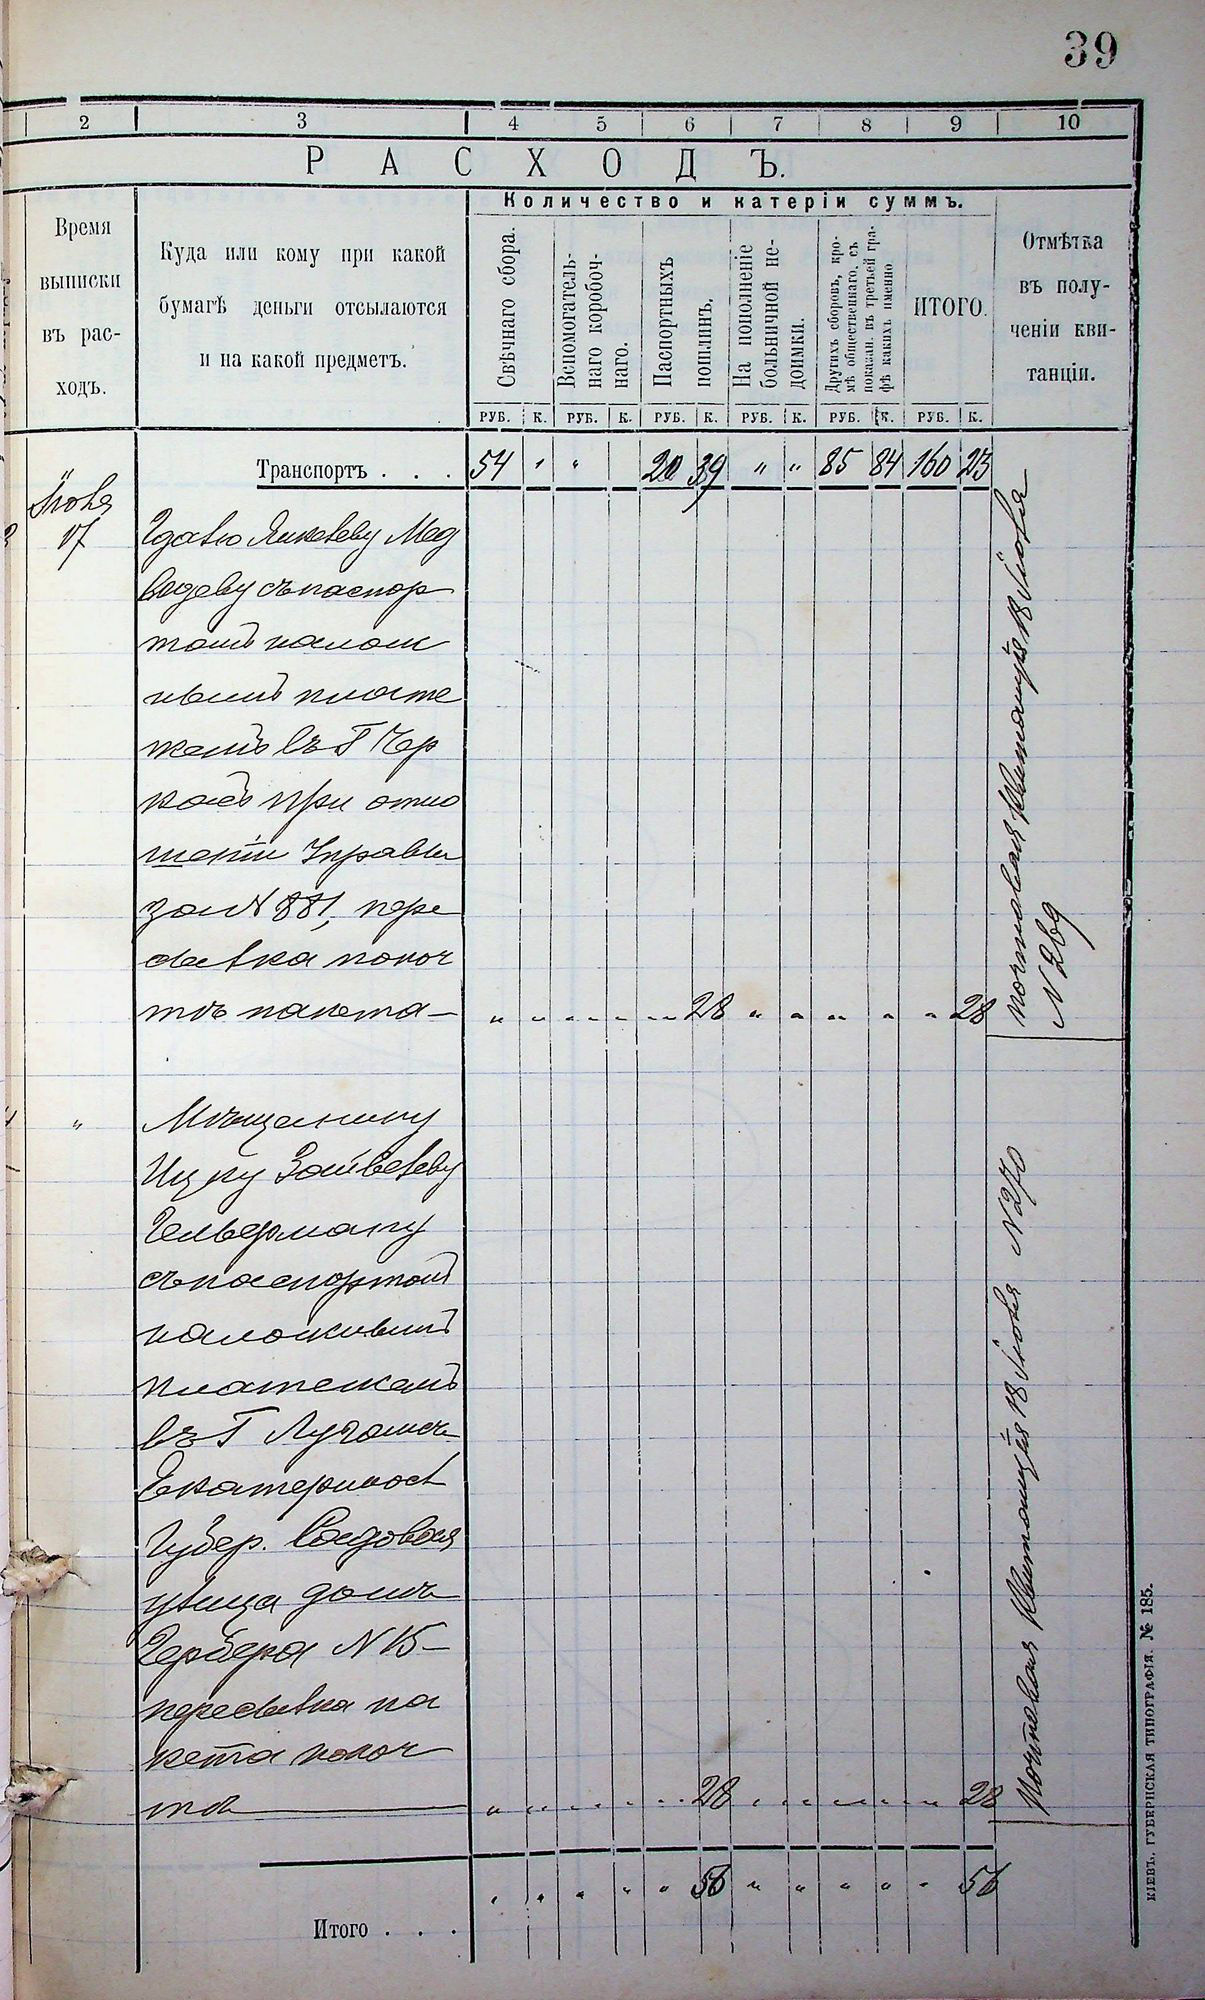 39
2 3 4 5 6 7 8 9 10
РАСХОДЪ.
Количество и катеріи суммъ.
Время
выписки
въ рас-
ходъ.
Куда или кому при какой
бумагѣ деньги отсылаются
и на какой предметъ.
Свѣчнаго сбора.
Вспомогатель-
наго коробоч-
наго.
Паспортныхъ
пошлинъ.
На пополненіе
больничной не-
доимки.
Другихъ сборовъ, кро-
мѣ общественнаго. съ
показан. въ третьей гра-
фѣ какихъ именно
ИТОГО.
Отмѣтка
въ полу-
ченіи кви-
танціи.
РУБ. К. РУБ. К. РУБ. К. РУБ. К. РУБ. К. РУБ. К.
Транспортъ . . . 54 " " 20 39 " " 85 84 160 23
Іюня
17
Янкелеву Мед
ведеву съ паспор
томъ налож
нымъ плате
жемъ въ Г Чер
касы при отно
шеніи Управы
за N 881, пере
сылка по поч
тѣ пакета — 28 28
почтовая квитанція 18 Іюня
N 269
" Мѣщанину
Ицку
Гельферману
съ паспортомъ
наложнымъ
платежемъ
въ Г Луганск
Екатеринос
Губер. Садовая
улица домъ
Гербера N 15 —
пересылка па
кета по поч
тѣ 28 28
Почтовая квитанція 18 Іюня N 270
Итого . . . 56 56
КІЕВЪ, ГУБЕРНСКАЯ ТИПОГРАФІЯ. № 185.